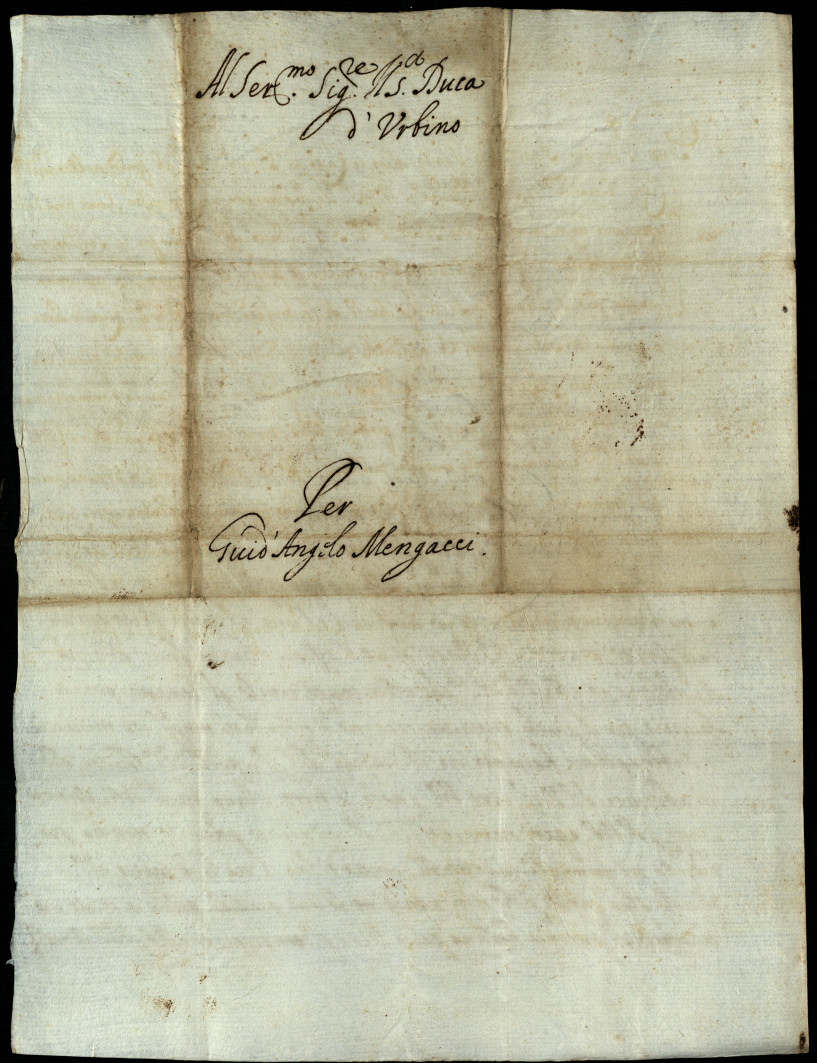 Al Ser.mo Sig.re Il S.r Duca
d' Urbino
Per
Guid' Angelo Mengacci.